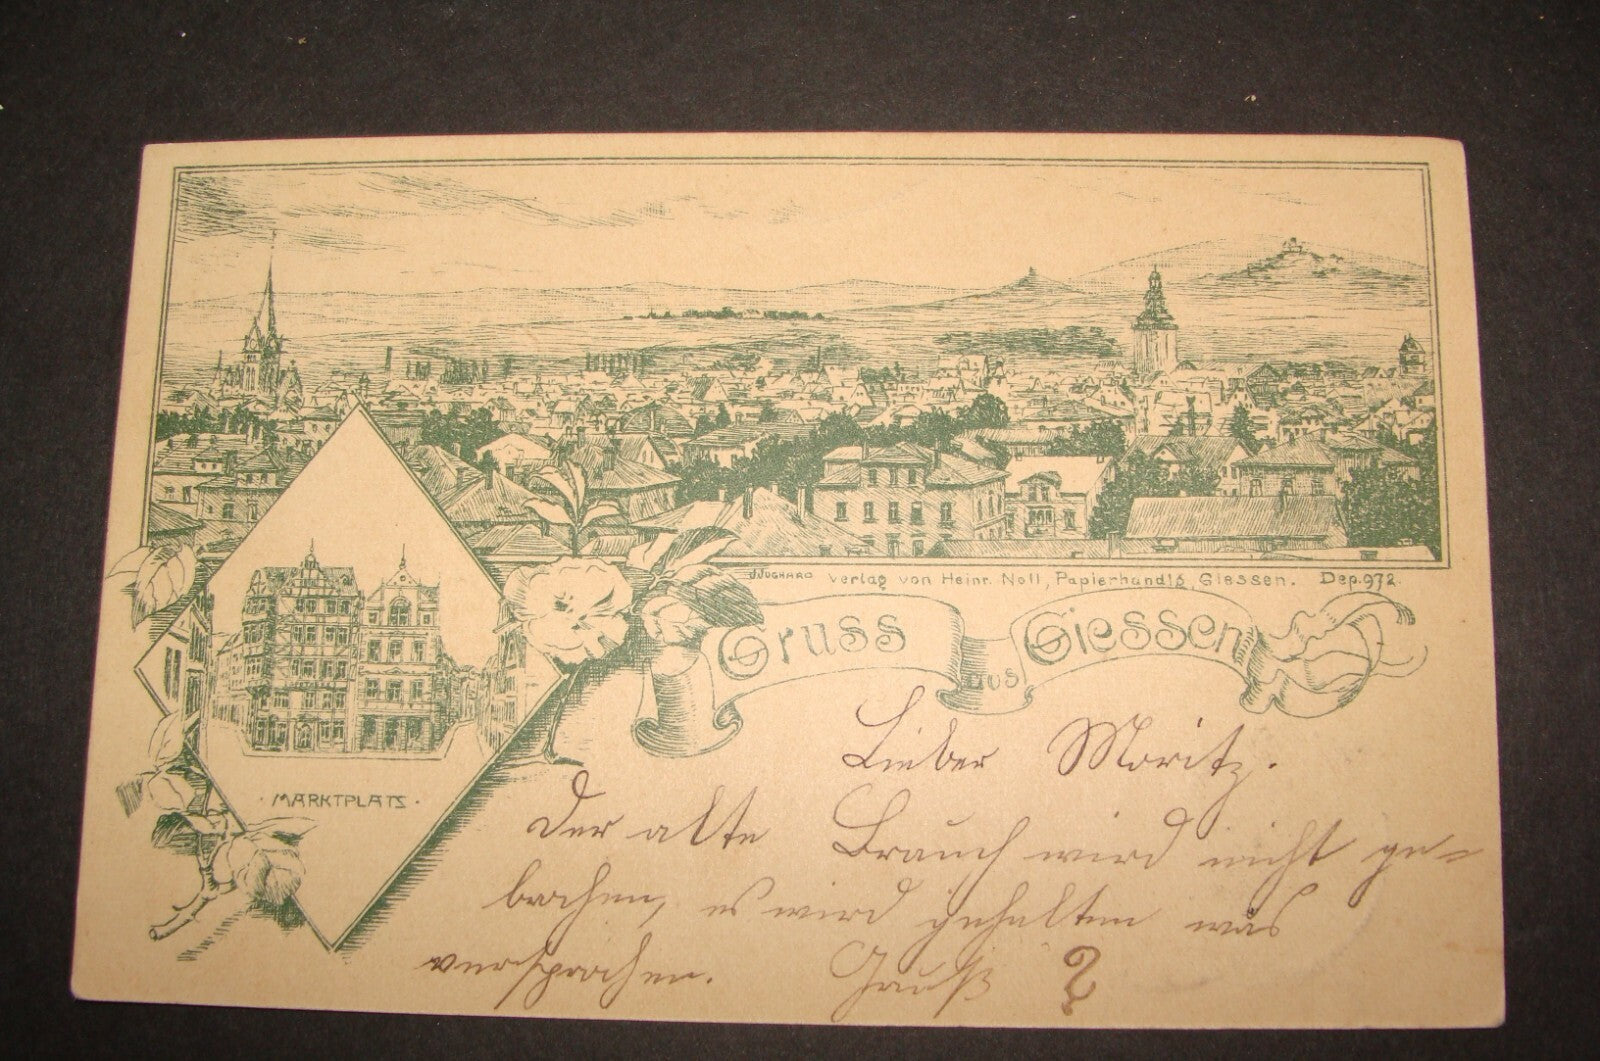 J. JUGHARD Verlag von Heinr. Noll, Papierhandlg, Giessen. Dep. 972.
Gruss aus Giessen
· MARKTPLATZ ·
Lieber Moritz.
Der alte Brauch wird nicht ge=
brochen, es wird gehalten was
versprochen. Gruß